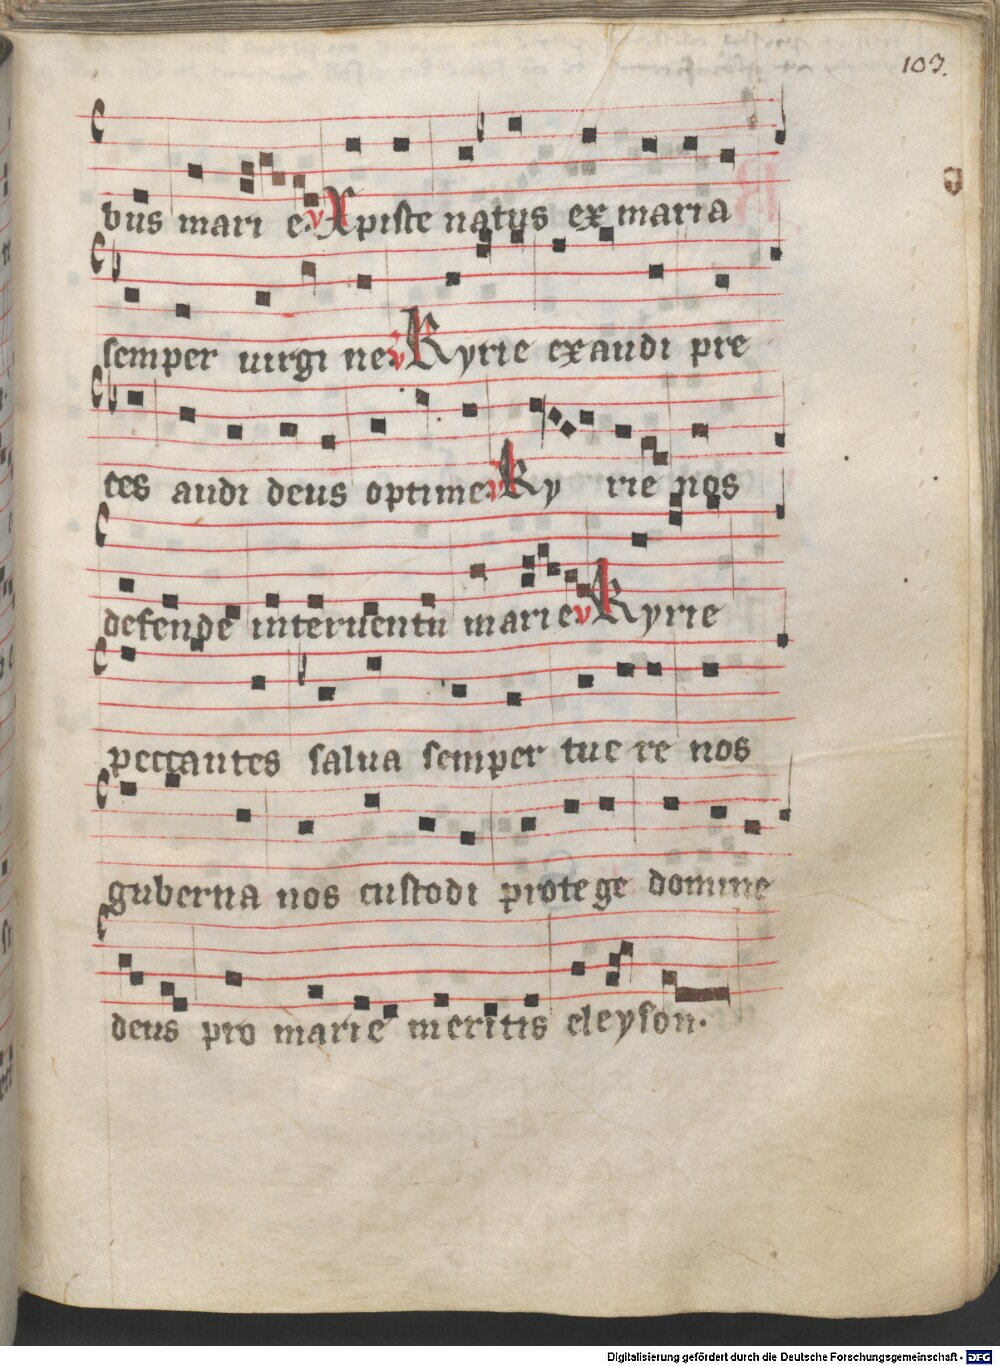 103.
bus mari e. v Xpiste natus ex maria
semper uirgi ne. v Kyrie exaudi pre
ces audi deus optime. v Ky rie nos
defende interuentu marie v Kyrie
peccantes salua semper tue re nos
guberna nos custodi protege domine
deus pro marie meritis eleyson.
Digitalisierung gefördert durch die Deutsche Forschungsgemeinschaft - DFG